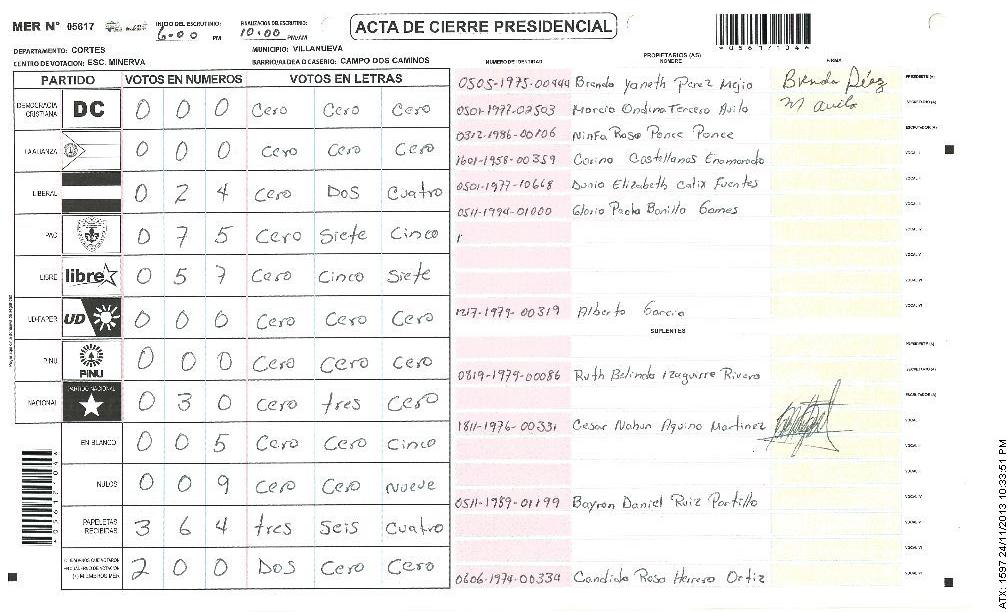 MER Nº 05617
INICIO DEL ESCRUTINIO: 6:00 PM
FINALIZACION DEL ESCRUTINIO: 10:00 PM/AM
ACTA DE CIERRE PRESIDENCIAL
056171044
DEPARTAMENTO: CORTES
MUNICIPIO: VILLANUEVA
CENTRO DE VOTACION: ESC. MINERVA
BARRIO/ALDEA O CASERIO: CAMPO DOS CAMINOS
NUMERO DE IDENTIDAD
PROPIETARIOS (AS)
NOMBRE
FIRMA
PARTIDO VOTOS EN NUMEROS VOTOS EN LETRAS
DEMOCRACIA CRISTIANA DC 0 0 0 Cero Cero Cero
LA ALIANZA 0 0 0 Cero Cero Cero
LIBERAL 0 2 4 Cero Dos Cuatro
PAC 0 7 5 Cero Siete Cinco
LIBRE libre 0 5 7 Cero Cinco Siete
UD-FAPER UD 0 0 0 Cero Cero Cero
PINU PINU 0 0 0 Cero Cero Cero
NACIONAL PARTIDO NACIONAL 0 3 0 Cero tres Cero
EN BLANCO 0 0 5 Cero Cero Cinco
NULOS 0 0 9 Cero Cero Nueve
PAPELETAS RECIBIDAS 3 6 4 tres Seis Cuatro
2 0 0 Dos Cero Cero
0505-1975-00444 Brenda Yaneth Perez Mejia
PRESIDENTE (A)
0501-1977-02503 Marcia Ondina Tercero Avila M Avila
SECRETARIO (A)
0312-1986-00106 Ninfa Rosa Ponce Ponce
ESCRUTADOR (A)
1601-1958-00359 Corina Castellanos Enamorado
0501-1977-10668 Dunia Elizabeth Calix Fuentes
0511-1994-01000 Gloria Paola Bonilla Gomes
1217-1979-00319 Alberto Garcia
SUPLENTES
PRESIDENTE (A)
0819-1979-00086 Ruth Belinda Izaguirre Rivera
SECRETARIO (A)
ESCRUTADOR (A)
1811-1976-00331 Cesar Nahun Aquino Martinez
0511-1989-01199 Bayron Daniel Ruiz Portillo
0606-1974-00334 Candida Rosa Herrera Ortiz
ATX: 1597 24/11/2013 10:33:51 PM